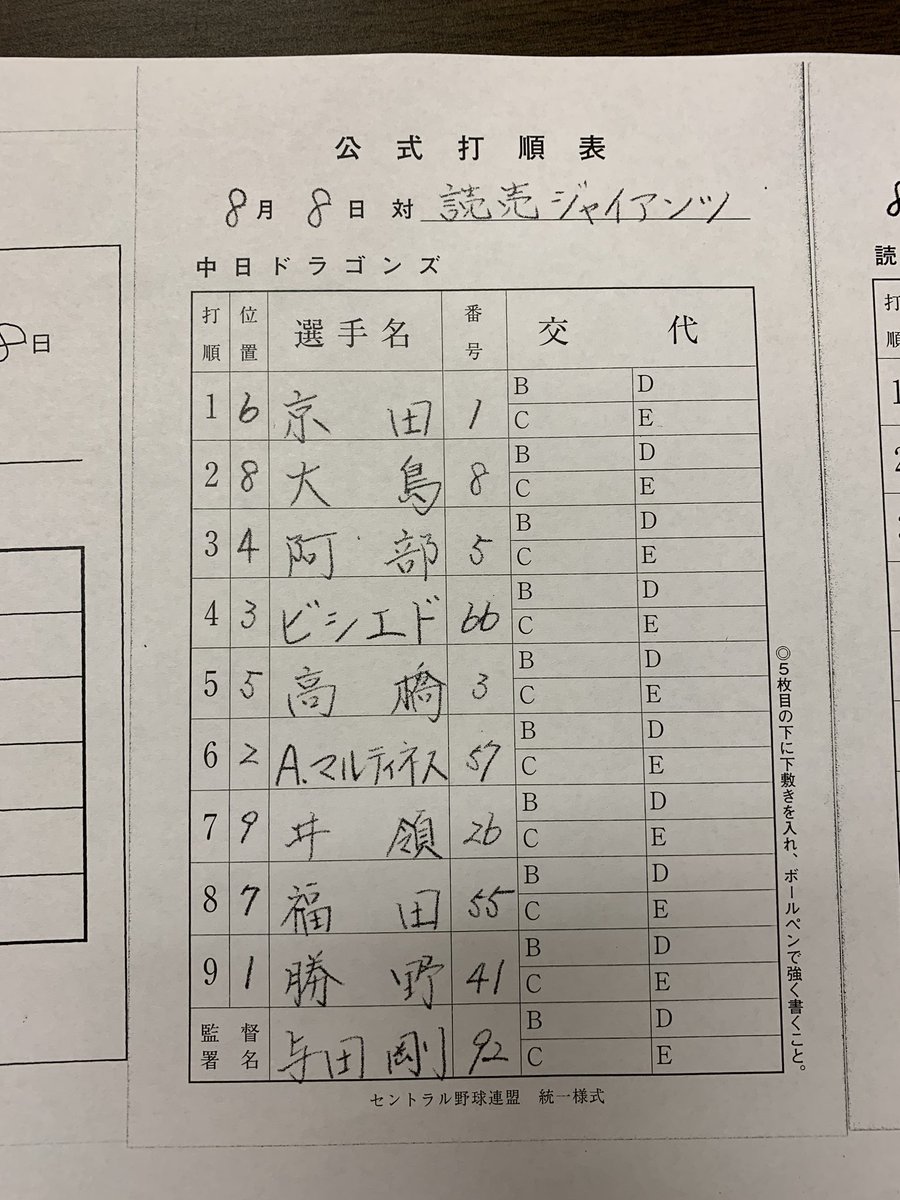 公式打順表
8月 8日 対 読売ジャイアンツ
中日ドラゴンズ
打順 位置 選手名 番号 交代
1 6 京田 1 B D
C E
2 8 大島 8 B D
C E
3 4 阿部 5 B D
C E
4 3 ビシエド 66 B D
C E
5 5 高橋 3 B D
C E
6 2 A.マルティネス 57 B D
C E
7 9 井領 26 B D
C E
8 7 福田 55 B D
C E
9 1 勝野 41 B D
C E
監督署名 与田剛 92 B D
C E
セントラル野球連盟 統一様式
◎5枚目の下に下敷きを入れ、ボールペンで強く書くこと。
8日
8
読
打順
1
2